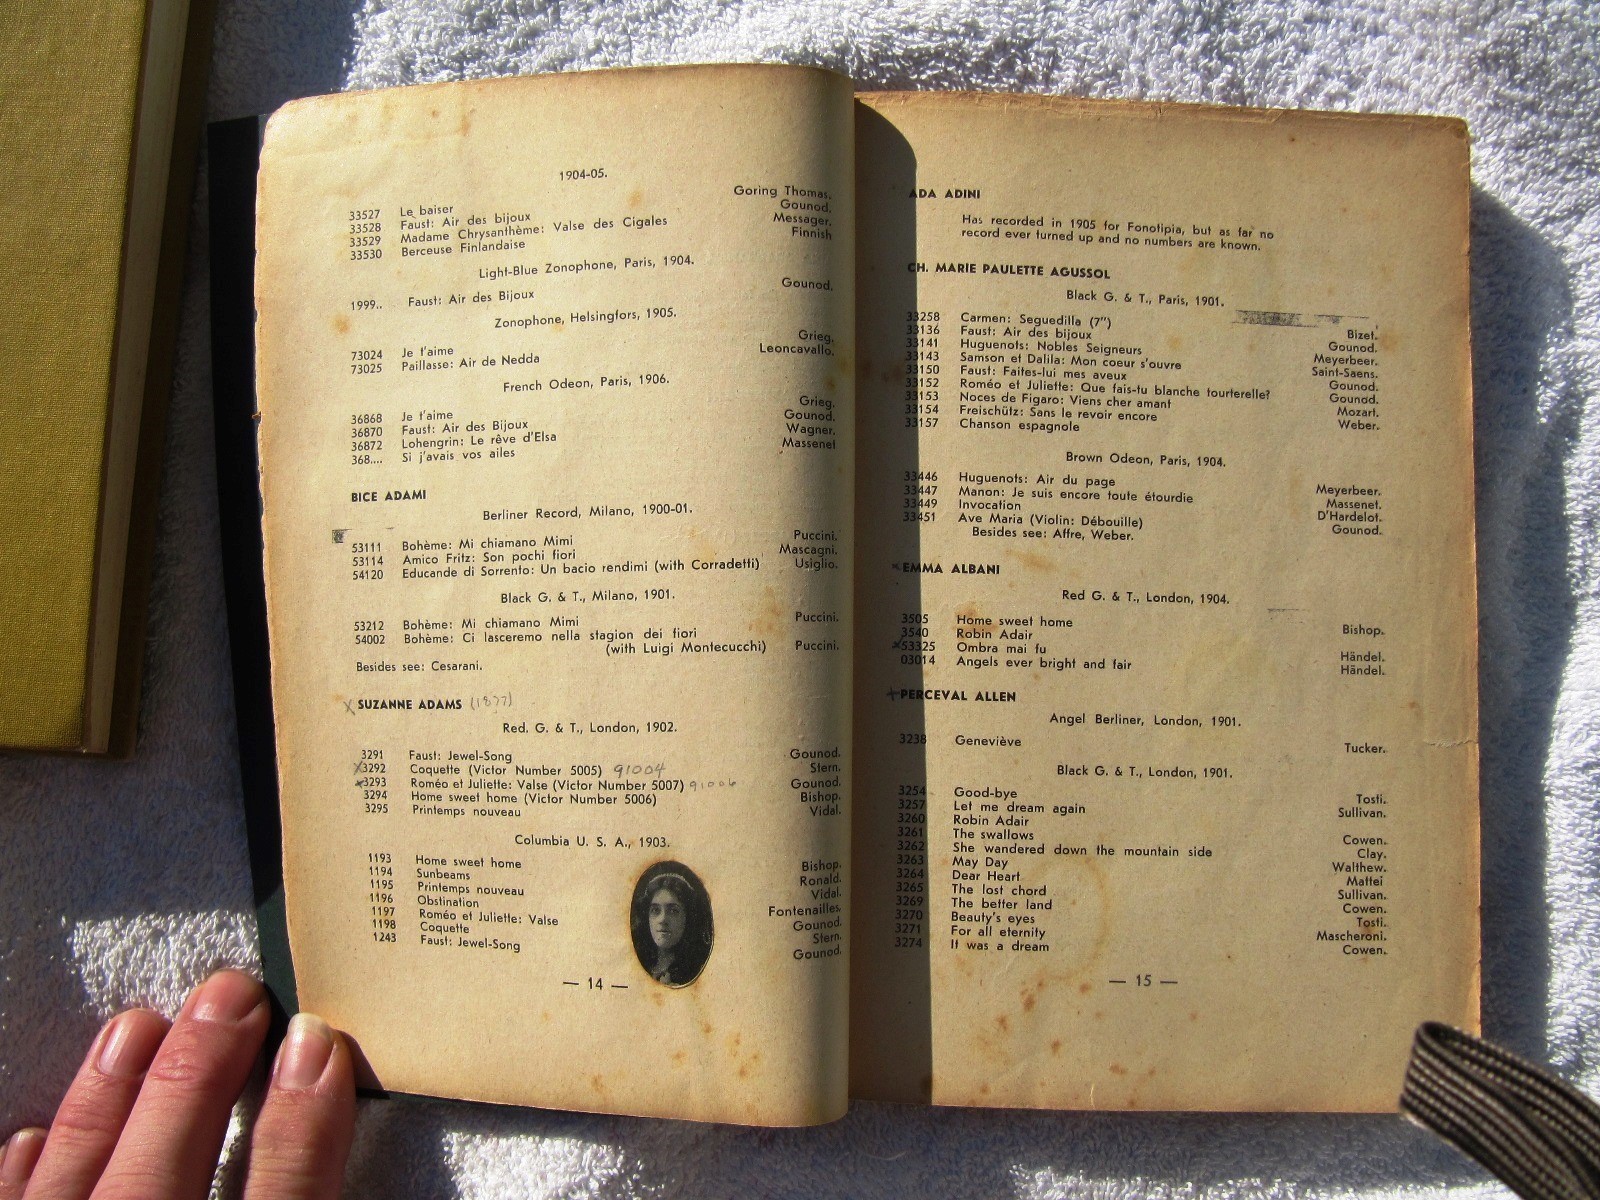 1904-05.
33527 Le baiser Goring Thomas.
33528 Faust: Air des bijoux Gounod.
33529 Madame Chrysanthème: Valse des Cigales Messager.
33530 Berceuse Finlandaise Finnish
Light-Blue Zonophone, Paris, 1904.
1999.. Faust: Air des Bijoux Gounod.
Zonophone, Helsingfors, 1905.
73024 Je t'aime Grieg.
73025 Paillasse: Air de Nedda Leoncavallo.
French Odeon, Paris, 1906.
36868 Je t'aime Grieg.
36870 Faust: Air des Bijoux Gounod.
36872 Lohengrin: Le rêve d'Elsa Wagner.
368.... Si j'avais vos ailes Massenet
BICE ADAMI
Berliner Record, Milano, 1900-01.
53111 Bohème: Mi chiamano Mimi Puccini.
53114 Amico Fritz: Son pochi fiori Mascagni.
54120 Educande di Sorrento: Un bacio rendimi (with Corradetti) Usiglio.
Black G. & T., Milano, 1901.
53212 Bohème: Mi chiamano Mimi Puccini.
54002 Bohème: Ci lasceremo nella stagion dei fiori
(with Luigi Montecucchi) Puccini.
Besides see: Cesarani.
X SUZANNE ADAMS (1877)
Red. G. & T., London, 1902.
3291 Faust: Jewel-Song Gounod.
X3292 Coquette (Victor Number 5005) 91004 Stern.
X3293 Roméo et Juliette: Valse (Victor Number 5007) 91006 Gounod.
3294 Home sweet home (Victor Number 5006) Bishop.
3295 Printemps nouveau Vidal.
Columbia U. S. A., 1903.
1193 Home sweet home Bishop.
1194 Sunbeams Ronald.
1195 Printemps nouveau Vidal.
1196 Obstination Fontenailles.
1197 Roméo et Juliette: Valse Gounod.
1198 Coquette Stern.
1243 Faust: Jewel-Song Gounod.
— 14 —
ADA ADINI
Has recorded in 1905 for Fonotipia, but as far no
record ever turned up and no numbers are known.
CH. MARIE PAULETTE AGUSSOL
Black G. & T., Paris, 1901.
33258 Carmen: Seguedilla (7") Bizet.
33136 Faust: Air des bijoux Gounod.
33141 Huguenots: Nobles Seigneurs Meyerbeer.
33143 Samson et Dalila: Mon coeur s'ouvre Saint-Saens.
33150 Faust: Faites-lui mes aveux Gounod.
33152 Roméo et Juliette: Que fais-tu blanche tourterelle? Gounod.
33153 Noces de Figaro: Viens cher amant Mozart.
33154 Freischütz: Sans le revoir encore Weber.
33157 Chanson espagnole
Brown Odeon, Paris, 1904.
33446 Huguenots: Air du page Meyerbeer.
33447 Manon: Je suis encore toute étourdie Massenet.
33449 Invocation D'Hardelot.
33451 Ave Maria (Violin: Débouille) Gounod.
Besides see: Affre, Weber.
EMMA ALBANI
Red G. & T., London, 1904.
3505 Home sweet home Bishop.
3540 Robin Adair
X53325 Ombra mai fu Händel.
03014 Angels ever bright and fair Händel.
+PERCEVAL ALLEN
Angel Berliner, London, 1901.
3238 Geneviève Tucker.
Black G. & T., London, 1901.
3254 Good-bye Tosti.
3257 Let me dream again Sullivan.
3260 Robin Adair
3261 The swallows Cowen.
3262 She wandered down the mountain side Clay.
3263 May Day Walthew.
3264 Dear Heart Mattei
3265 The lost chord Sullivan.
3269 The better land Cowen.
3270 Beauty's eyes Tosti.
3271 For all eternity Mascheroni.
3274 It was a dream Cowen.
— 15 —